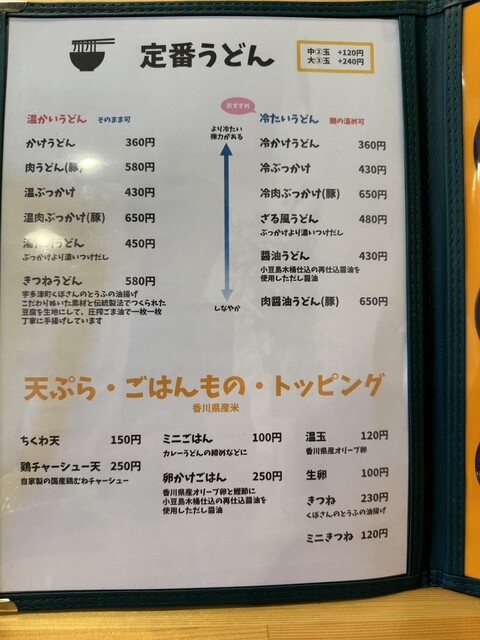 定番うどん
中②玉 +120円
大③玉 +240円
温かいうどん そのまま可
かけうどん 360円
肉うどん(豚) 580円
温ぶっかけ 430円
温肉ぶっかけ(豚) 650円
うどん 450円
ぶっかけより濃いつけだし
きつねうどん 580円
宇多津町くぼさんのとうふの油揚げ
こだわりぬいた素材と伝統製法でつくられた
豆腐を生地にして、圧搾ごま油で一枚一枚
丁寧に手揚げしています
おすすめ
より冷たい
弾力がある
しなやか
冷たいうどん 麺の温め可
冷かけうどん 360円
冷ぶっかけ 430円
冷肉ぶっかけ(豚) 650円
ざる風うどん 480円
ぶっかけより濃いつけだし
醬油うどん 430円
小豆島木桶仕込の再仕込醬油を
使用しただし醬油
肉醬油うどん(豚) 650円
天ぷら・ごはんもの・トッピング
香川県産米
ちくわ天 150円
鶏チャーシュー天 250円
自家製の国産鶏むねチャーシュー
ミニごはん 100円
カレーうどんの締めなどに
卵かけごはん 250円
香川県産オリーブ卵と鰹節に
小豆島木桶仕込の再仕込醬油を
使用しただし醬油
温玉 120円
香川県産オリーブ卵
生卵 100円
きつね 230円
くぼさんのとうふの油揚げ
ミニきつね 120円